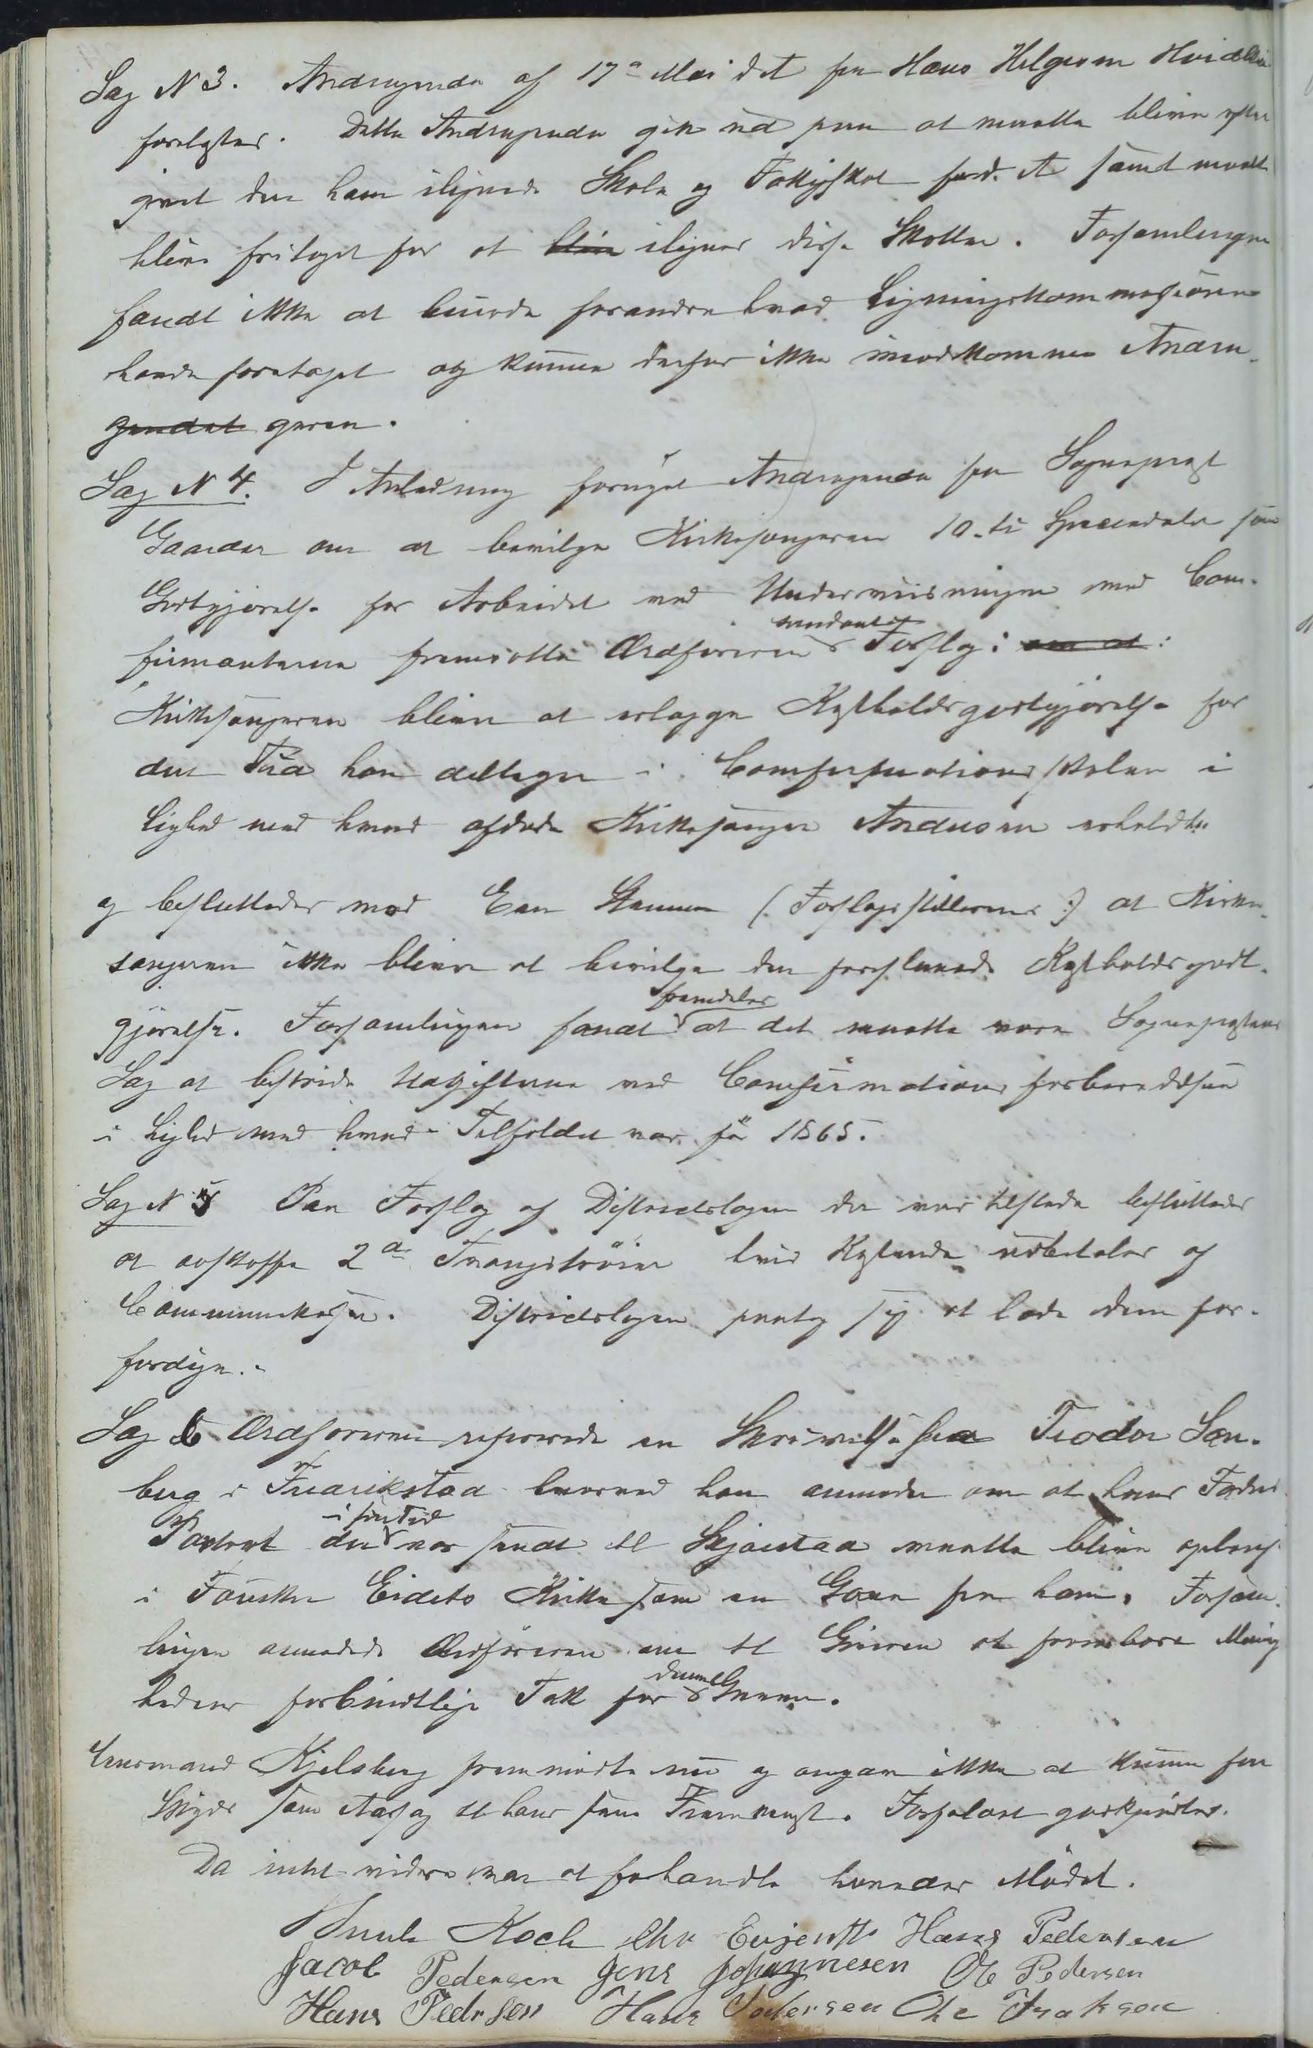 Sag N 3. Andragende af 17de Mai d. A. fra Hans Helgesen
forelagdes. Dette Andragende gik ud paa at maatte blive efter-
givet den ham ilignede Skole og Fattigskat samt maatte
blive fritaget for at blive ilignet disse Skatter. Forsamlingen
fandt ikke at burde forandre hvad Ligningskommissionen
havde foretaget og kunne derfor ikke imødekomme Andra-
gendet geren.
Sag N 4. I Anledning Andragende fra Sogneprest
om at bevilge Kirkesangeren 10-ti Speciedaler som
Godtgjørelse for Arbeidet ved Underviisningen med Con-
firmanterne fremsatte Ordføreren Forslag: om at:
Kirkesangeren bliver at erlægge Kostholdsgodtgjørelse for
den Tid han deltager i Confirmationsskolen i
Lighed med hvad afdøde Kirkesanger Andersen erholdt
og besluttedes mod Een Stemme (Forslagsstillerens) at Kirke-
sangeren ikke bliver at bevilge den foreslaaede Kostholdsgodt-
gjørelse. Forsamlingen fandt fremdeles at det maatte være Sogneprestens
Sag at bestride Udgifterne ved Confirmationsforberedelsen
i Lighed med hvad Tilfældet var før 1865.
Sag N 5 Paa Forslag af Districtslægen der var tilstede besluttedes
at anskaffe 2de Trangstrøier hvis Kostende udbetales af
Communekassen. Districtslægen paatog sig at lade dem for-
færdige.-
Sag 6 Ordføreren refererede en Skrivelse fra Teodor Søn-
berg i Fredrikstad hvorved han anmoder om at hans Faders
Portræt der i sin Tid var sendt til Skjerstad maatte blive ophængt
i Fauske Eidets Kirke som en Gave fra ham. Forsam-
lingen anmodede Ordføreren om til Giveren at frembære Menig
hedens forbindtlige Tak for denne Gaven.
Lensmand Kjelsberg fremmødte nu og angav ikke at kunne faa
Skyds som Aarsag til hans sene Fremkomst. Forfaldet godkjendtes.
Da intet videre var at forhandle hævedes Mødet.
Koch Chr Evjenth Hans Pedersen
Jacob Pedersen Jens Johannesen Ole Pedersen
Hans Pedersen Hans Pedersen Ole Isakson